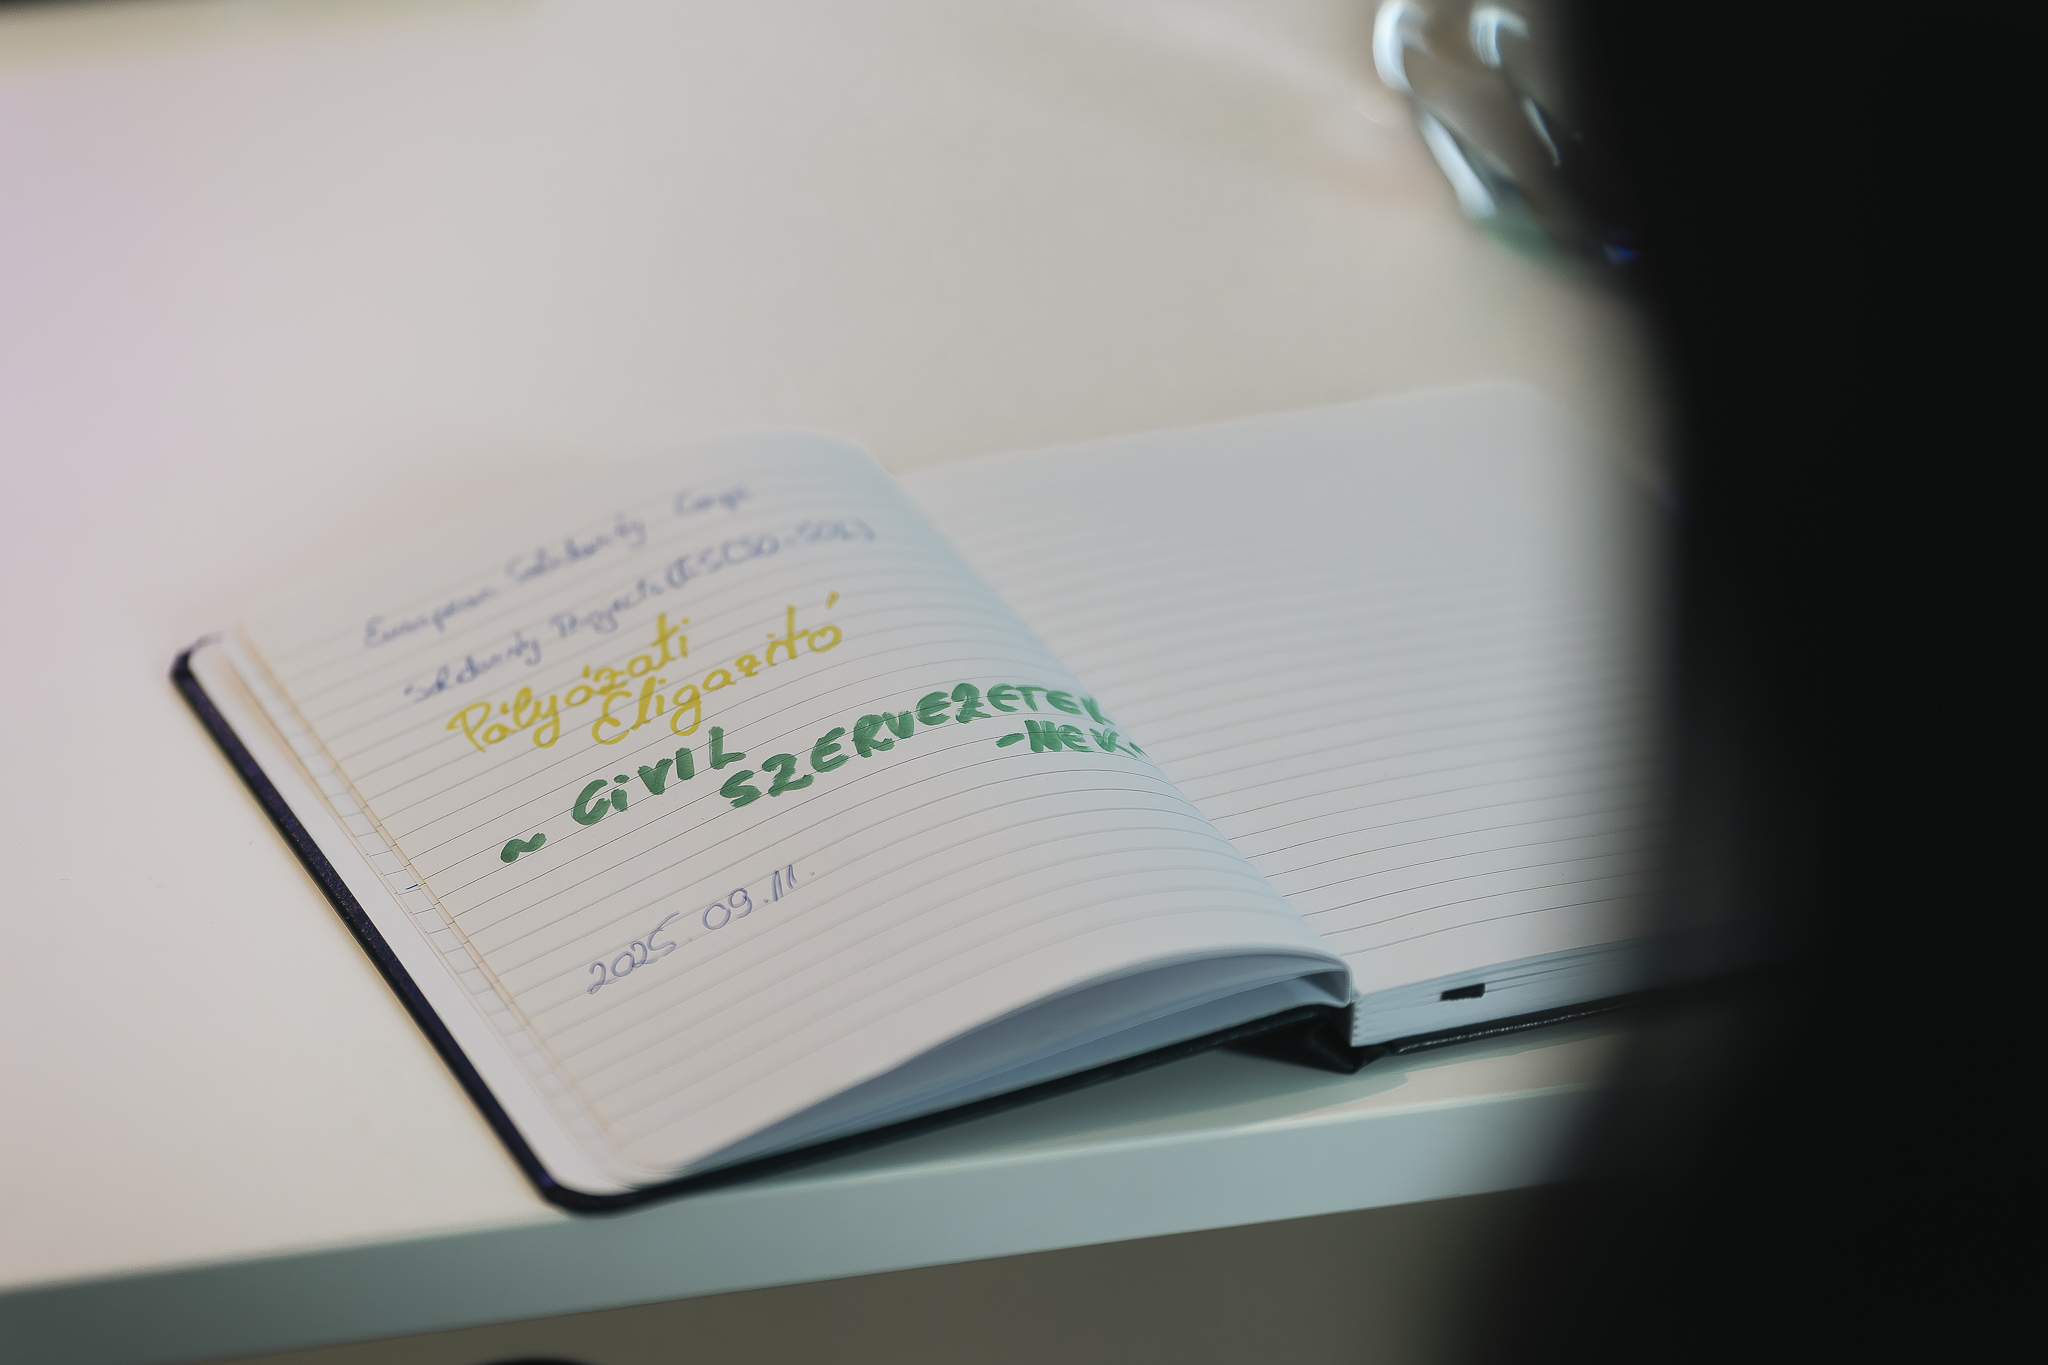 European Solidarity Corps
Solidarity Projects (ESC30-SOL)
Pályázati
Eligazító
~ CiVIL
SZERVEZETEK
-NEK
2025. 09. 11.